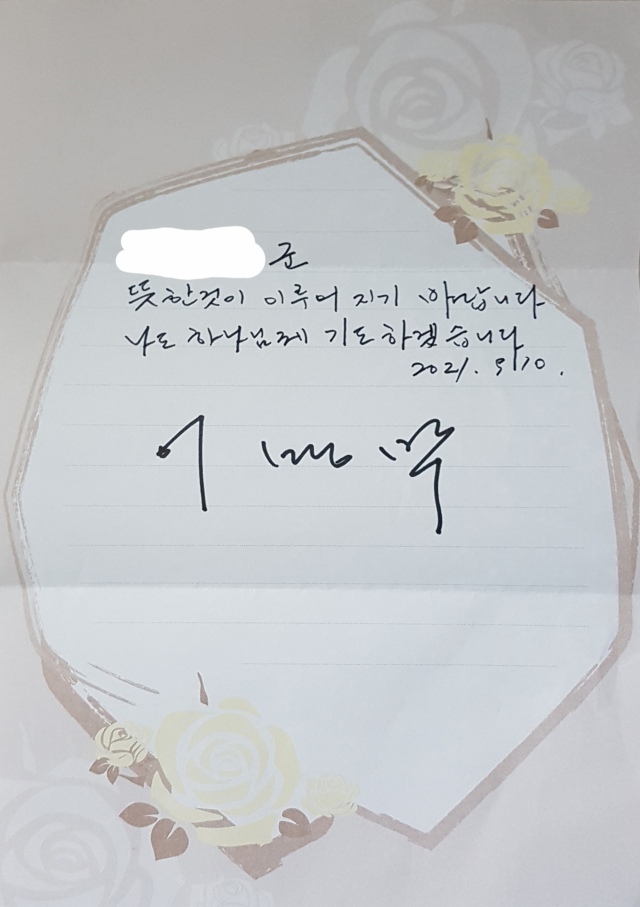 군
뜻한것이 이루어 지기 바랍니다
나도 하나님께 기도하겠습니다
2021. 9. 10.
이